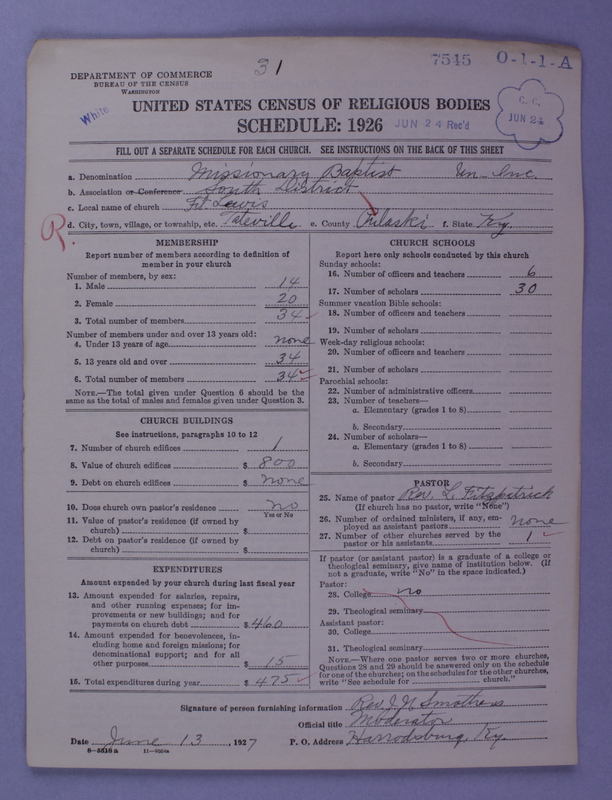 31
7545 O-1-1-A
DEPARTMENT OF COMMERCE
BUREAU OF THE CENSUS
WASHINGTON
White
UNITED STATES CENSUS OF RELIGIOUS BODIES
SCHEDULE: 1926 JUN 24 Rec'd
C. C.
JUN 24
FILL OUT A SEPARATE SCHEDULE FOR EACH CHURCH. SEE INSTRUCTIONS ON THE BACK OF THIS SHEET
a. Denomination Missionary Baptist Un-Inc.
b. Association or Conference South District
c. Local name of church Ft. Lewis
d. City, town, village, or township, etc. Tateville e. County Pulaski f. State Ky.
R.
MEMBERSHIP
Report number of members according to definition of
member in your church
Number of members, by sex:
1. Male 14
2. Female 20
3. Total number of members 34
Number of members under and over 13 years old:
4. Under 13 years of age none
5. 13 years old and over 34
6. Total number of members 34
NOTE.—The total given under Question 6 should be
same as the total of males and females given under Question 3.
CHURCH BUILDINGS
See instructions, paragraphs 10 to 12
7. Number of church edifices 1
8. Value of church edifices $ 800
9. Debt on church edifices $ none
10. Does church own pastor's residence no
Yes or No
11. Value of pastor's residence (if owned by
church) $
12. Debt on pastor's residence (if owned by
church) $
EXPENDITURES
Amount expended by your church during last fiscal year
13. Amount expended for salaries, repairs,
and other running expenses; for im-
provements or new buildings; and for
payments on church debt $ 460
14. Amount expended for benevolences, in-
cluding home and foreign missions; for
denominational support; and for all
other purposes $ 15
15. Total expenditures during year $ 475
CHURCH SCHOOLS
Report here only schools conducted by this church
Sunday schools:
16. Number of officers and teachers 6
17. Number of scholars 30
Summer vacation Bible schools:
18. Number of officers and teachers
19. Number of scholars
Week-day religious schools:
20. Number of officers and teachers
21. Number of scholars
Parochial schools:
22. Number of administrative officers
23. Number of teachers—
a. Elementary (grades 1 to 8)
b. Secondary
24. Number of scholars—
a. Elementary (grades 1 to 8)
b. Secondary
PASTOR
25. Name of pastor Rev. L. Fitzpitrick
(If church has no pastor, write "None")
26. Number of ordained ministers, if any, em-
ployed as assistant pastors none
27. Number of other churches served by the
pastor or his assistants 1
If pastor (or assistant pastor) is a graduate of a college or
theological seminary, give name of institution below. (If
not a graduate, write "No" in the space indicated.)
Pastor:
28. College no
29. Theological seminary
Assistant pastor:
30. College
31. Theological seminary
NOTE.—Where one pastor serves two or more churches,
Questions 28 and 29 should be answered only on the schedule
for one of the churches; on the schedules for the other churches,
write "See schedule for church."
Signature of person furnishing information Rev. J. N. Smothers
Official title Moderator
Date June 13, 1927 P. O. Address Harrodsburg, Ky.
8-5518a